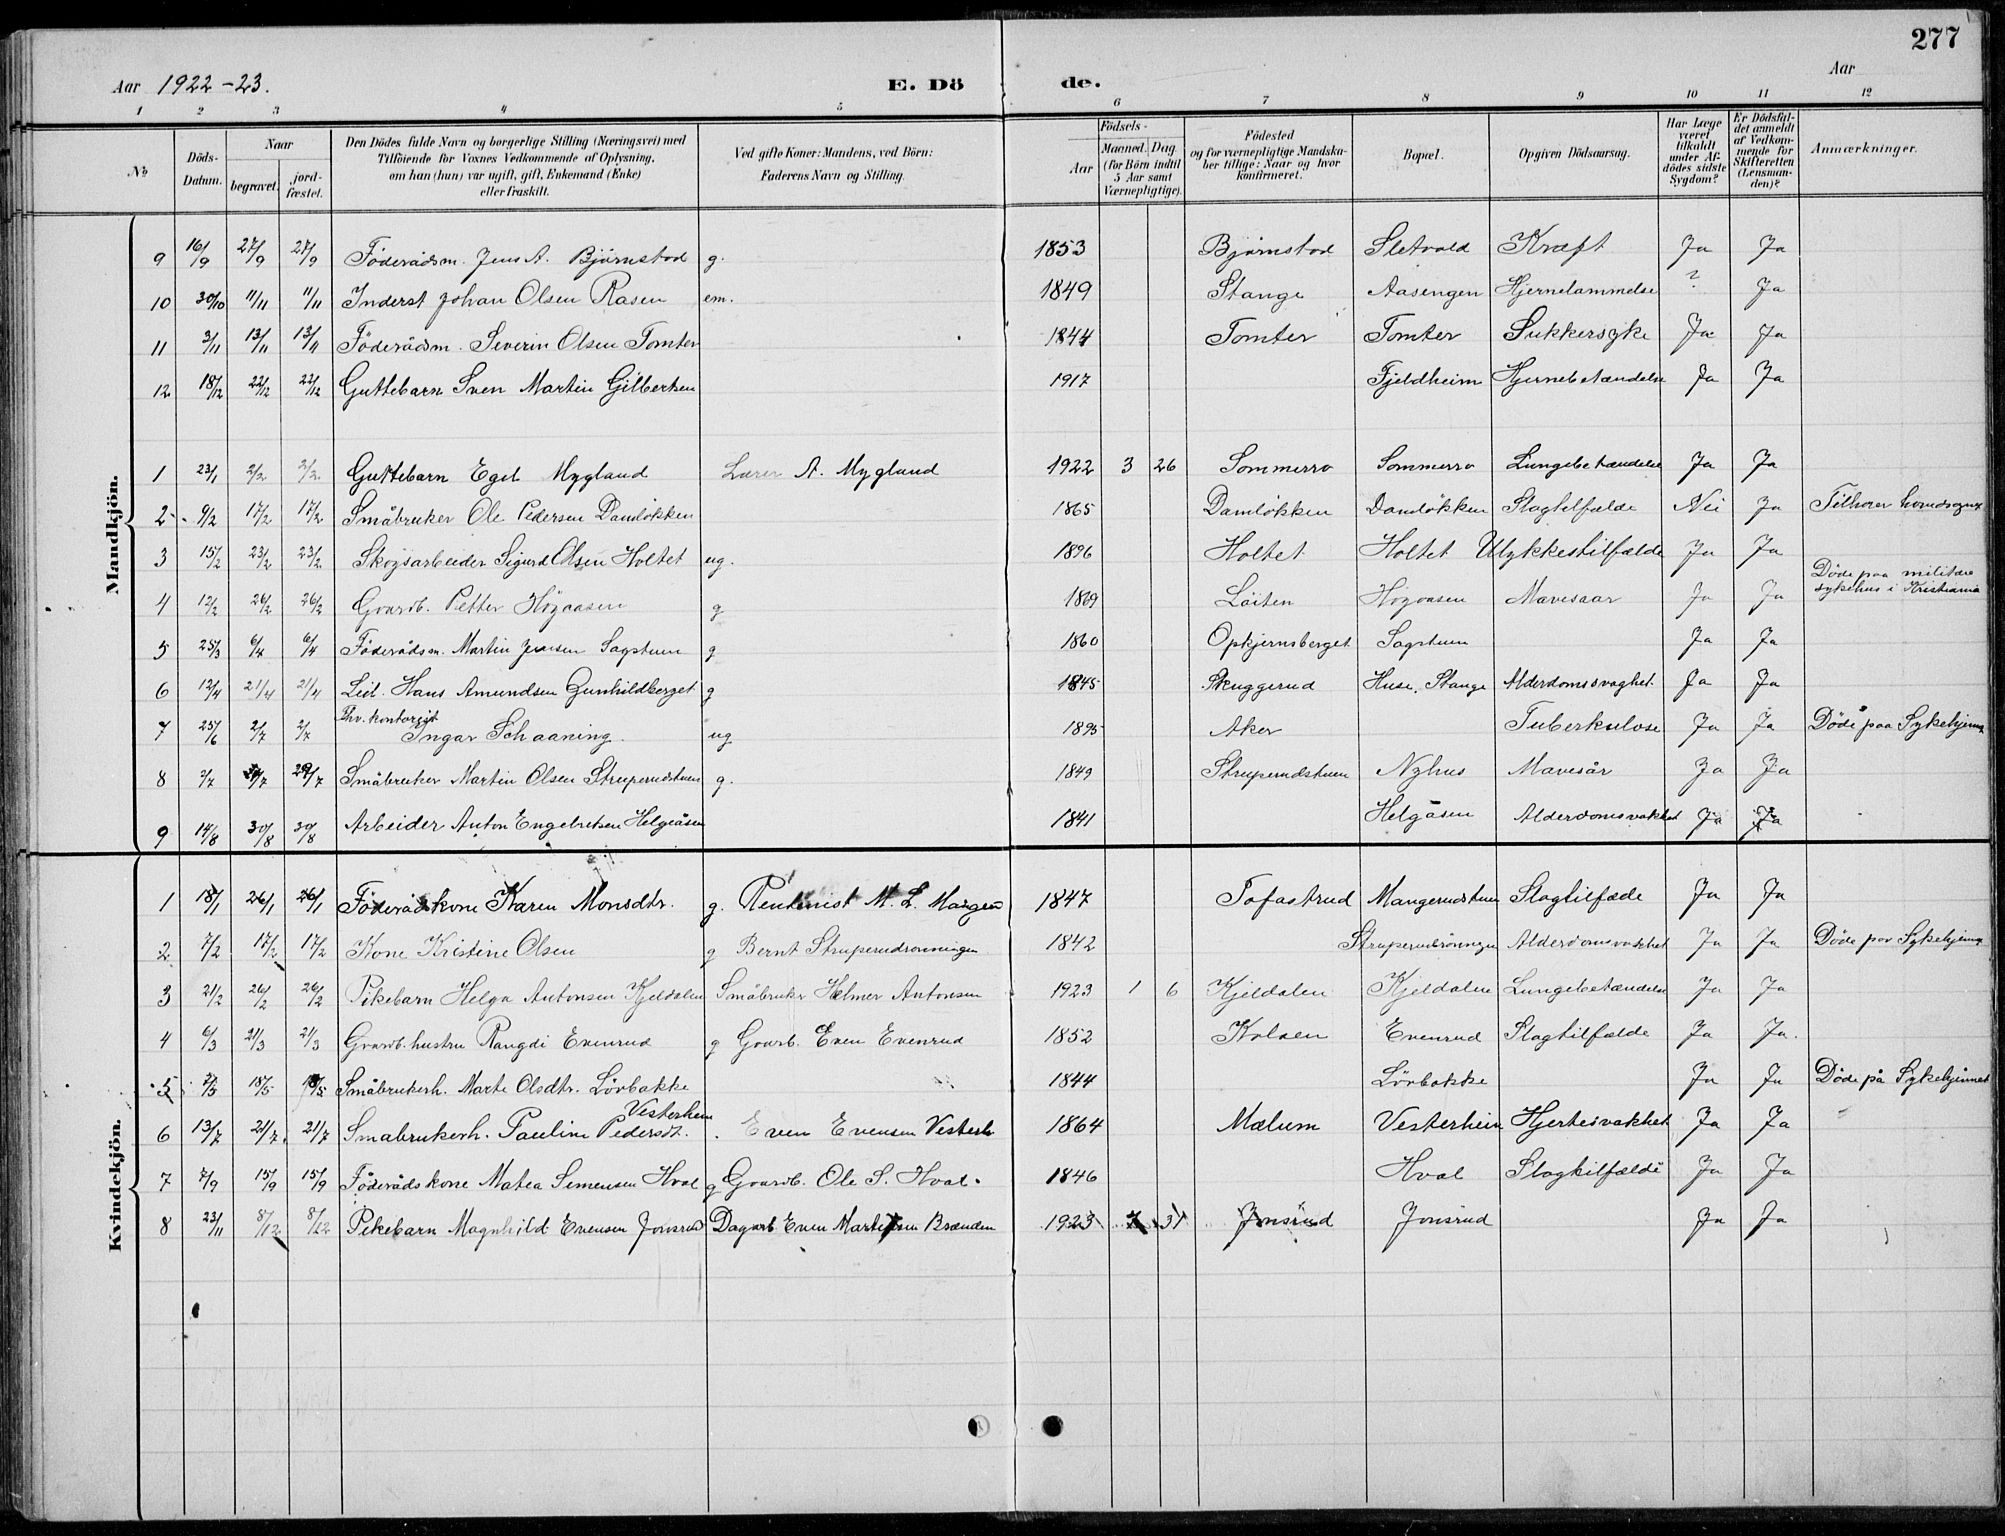 277
Aar 1922-23. E. Dö de. Aar
1 2 3 4 5 6 7 8 9 10 11 12
No
Döds-Datum.
Naar
begravet.
jord-fæstet.
Den Dödes fulde Navn og borgerlige Stilling (Næringsvei) med
Tilföiende for Voxnes Vedkommende af Oplysning,
om han (hun) var ugift, gift, Enkemand (Enke)
eller fraskilt.
Ved gifte Koner: Mandens, ved Börn:
Faderens Navn og Stilling.
Födsels-
Aar
Maaned. Dag
(for Börn indtil
5 Aar samt
Værnepligtige).
Födested
og for værnepligtige Mandska-
ber tillige: Naar og hvor
konfirmeret.
Bopæl.
Opgiven Dödsaarsag.
Har Læge
været
tilkaldt
under Af-
dödes sidste
Sygdom?
Er Dödsfal-
det anmeldt
af Vedkom-
mende for
Skifteretten
(Lensman-
den)?
Anmærkninger.
Mandkjön.
9 16/9 27/9 27/9 Föderådsm. Jens A. Björnstad g. 1853 Björnstad Sletvold Kræft Ja Ja
10 30/10 11/11 11/11 Inderst Johan Olsen Rasen em. 1849 Stange Aasengen Hjernelammelse ? Ja
11 3/11 13/11 13/11 Föderådsm. Severin Olsen Tomter 1844 Tomter Tomter Sukkersyke Ja Ja
12 18/12 22/12 22/12 Guttebarn Sven Martin Gilbertsen 1917 Fjeldheim Hjernebetændelse Ja Ja
1 23/1 2/2 2/2 Guttebarn Egil Mygland Lærer A. Mygland 1922 3 26 Sommerro Sommerro Lungebetændelse Ja Ja
2 9/2 17/2 17/2 Småbruker Ole Pedersen Damløkken 1865 Damløkken Damløkken Slagtilfælde Nei Ja Tilhører hovedsognet
3 15/2 23/2 23/2 Skogsarbeider Sigurd Olsen Holtet ug. 1896 Holtet Holtet Ulykkestilfælde Ja Ja
4 12/2 26/2 26/2 Gaardb. Petter Høgaasen g 1869 Löiten Høgaasen Mavesaar Ja Ja Döde paa militære sykehus i Kristiania
5 25/3 6/4 6/4 Föderådsm. Martin Jensen Sagstuen g 1860 Opkjernsberget Sagstuen Ja Ja
6 12/4 21/4 21/4 Leil. Hans Amundsen Gunhildberget g 1845 Skuggerud Huse, Stange Alderdomssvaghet Ja Ja
7 25/6 2/7 2/7 Fhv. kontorist Ingar Schaaning ug 1895 Aker Tuberkulose Ja Ja Döde paa Sykehjem
8 2/7 29/7 Småbruker Martin Olsen Struperudstuen g. 1849 Struperudstuen Nyhus Mavesår Ja Ja
9 14/8 30/8 30/8 Arbeider Anton Engebretsen Helgeåsen 1841 Helgåsen Alderdomsvakhet Ja Ja
Kvindekjön.
1 18/1 26/1 26/1 Föderådskone Karen Monsdtr. g. Rentenist M. L. Mangerud 1847 Tofastrud Mangerudstuen Slagtilfæde Ja Ja
2 7/2 17/2 17/2 Kone Kristine Olsen g Bernt Struperudrønningen 1842 Struperudrönningen Alderdomsvakhet Ja Ja Döde paa Sykehjem
3 21/2 26/2 26/2 Pikebarn Helga Antonsen Kjeldalen Småbruker Helmer Antonsen 1923 1 6 Kjeldalen Kjeldalen Lungebetændelse Ja Ja
4 6/3 21/3 21/3 Gaardb. hustru Rangdi Evenrud g Gaardb. Even Evenrud 1852 Kolsen Evenrud Slagtilfælde Ja Ja.
5 18/5 18/5 Småbrukerh. Marte Olsdtr. Lövbakke 1844 Lövbakke Ja Ja Döde på Sykehjemmet
6 13/7 21/7 21/7 Småbrukerh. Pauline Pedersdt. Vesterheim Even Evensen Vesterh 1864 Mælum Vesterheim Hjertesvakhet Ja Ja
7 7/9 15/9 15/9 Föderådskone Matea Simensen Hval g Gaardb. Ole S. Hval. 1846 Hval Slagtilfælde Ja Ja
8 23/11 8/12 8/12 Pikebarn Magnhild Evensen Jonsrud Dagarb. Even Martinsen Brænden 1923 7 31 Jonsrud Jonsrud Ja Ja